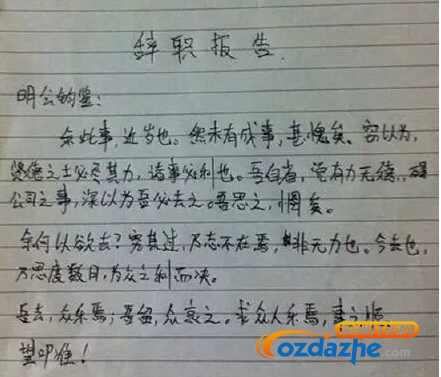 辞职报告.
明公钧鉴:
余此事,近岁也。然未有成事,甚愧矣。窃以为,
贤德之士必尽其力,诸事必利也。吾自省,有力无德,
公司之事,深以为吾必去之。吾思之,惘矣。
余何以欲去?究其过,乃志不在焉,非无力也。今去也,
乃思度数日,为众之利而决。
吾去,众乐焉;吾留,众哀之。求众人乐焉,事之顺
望叩准!
cozdazhe.com